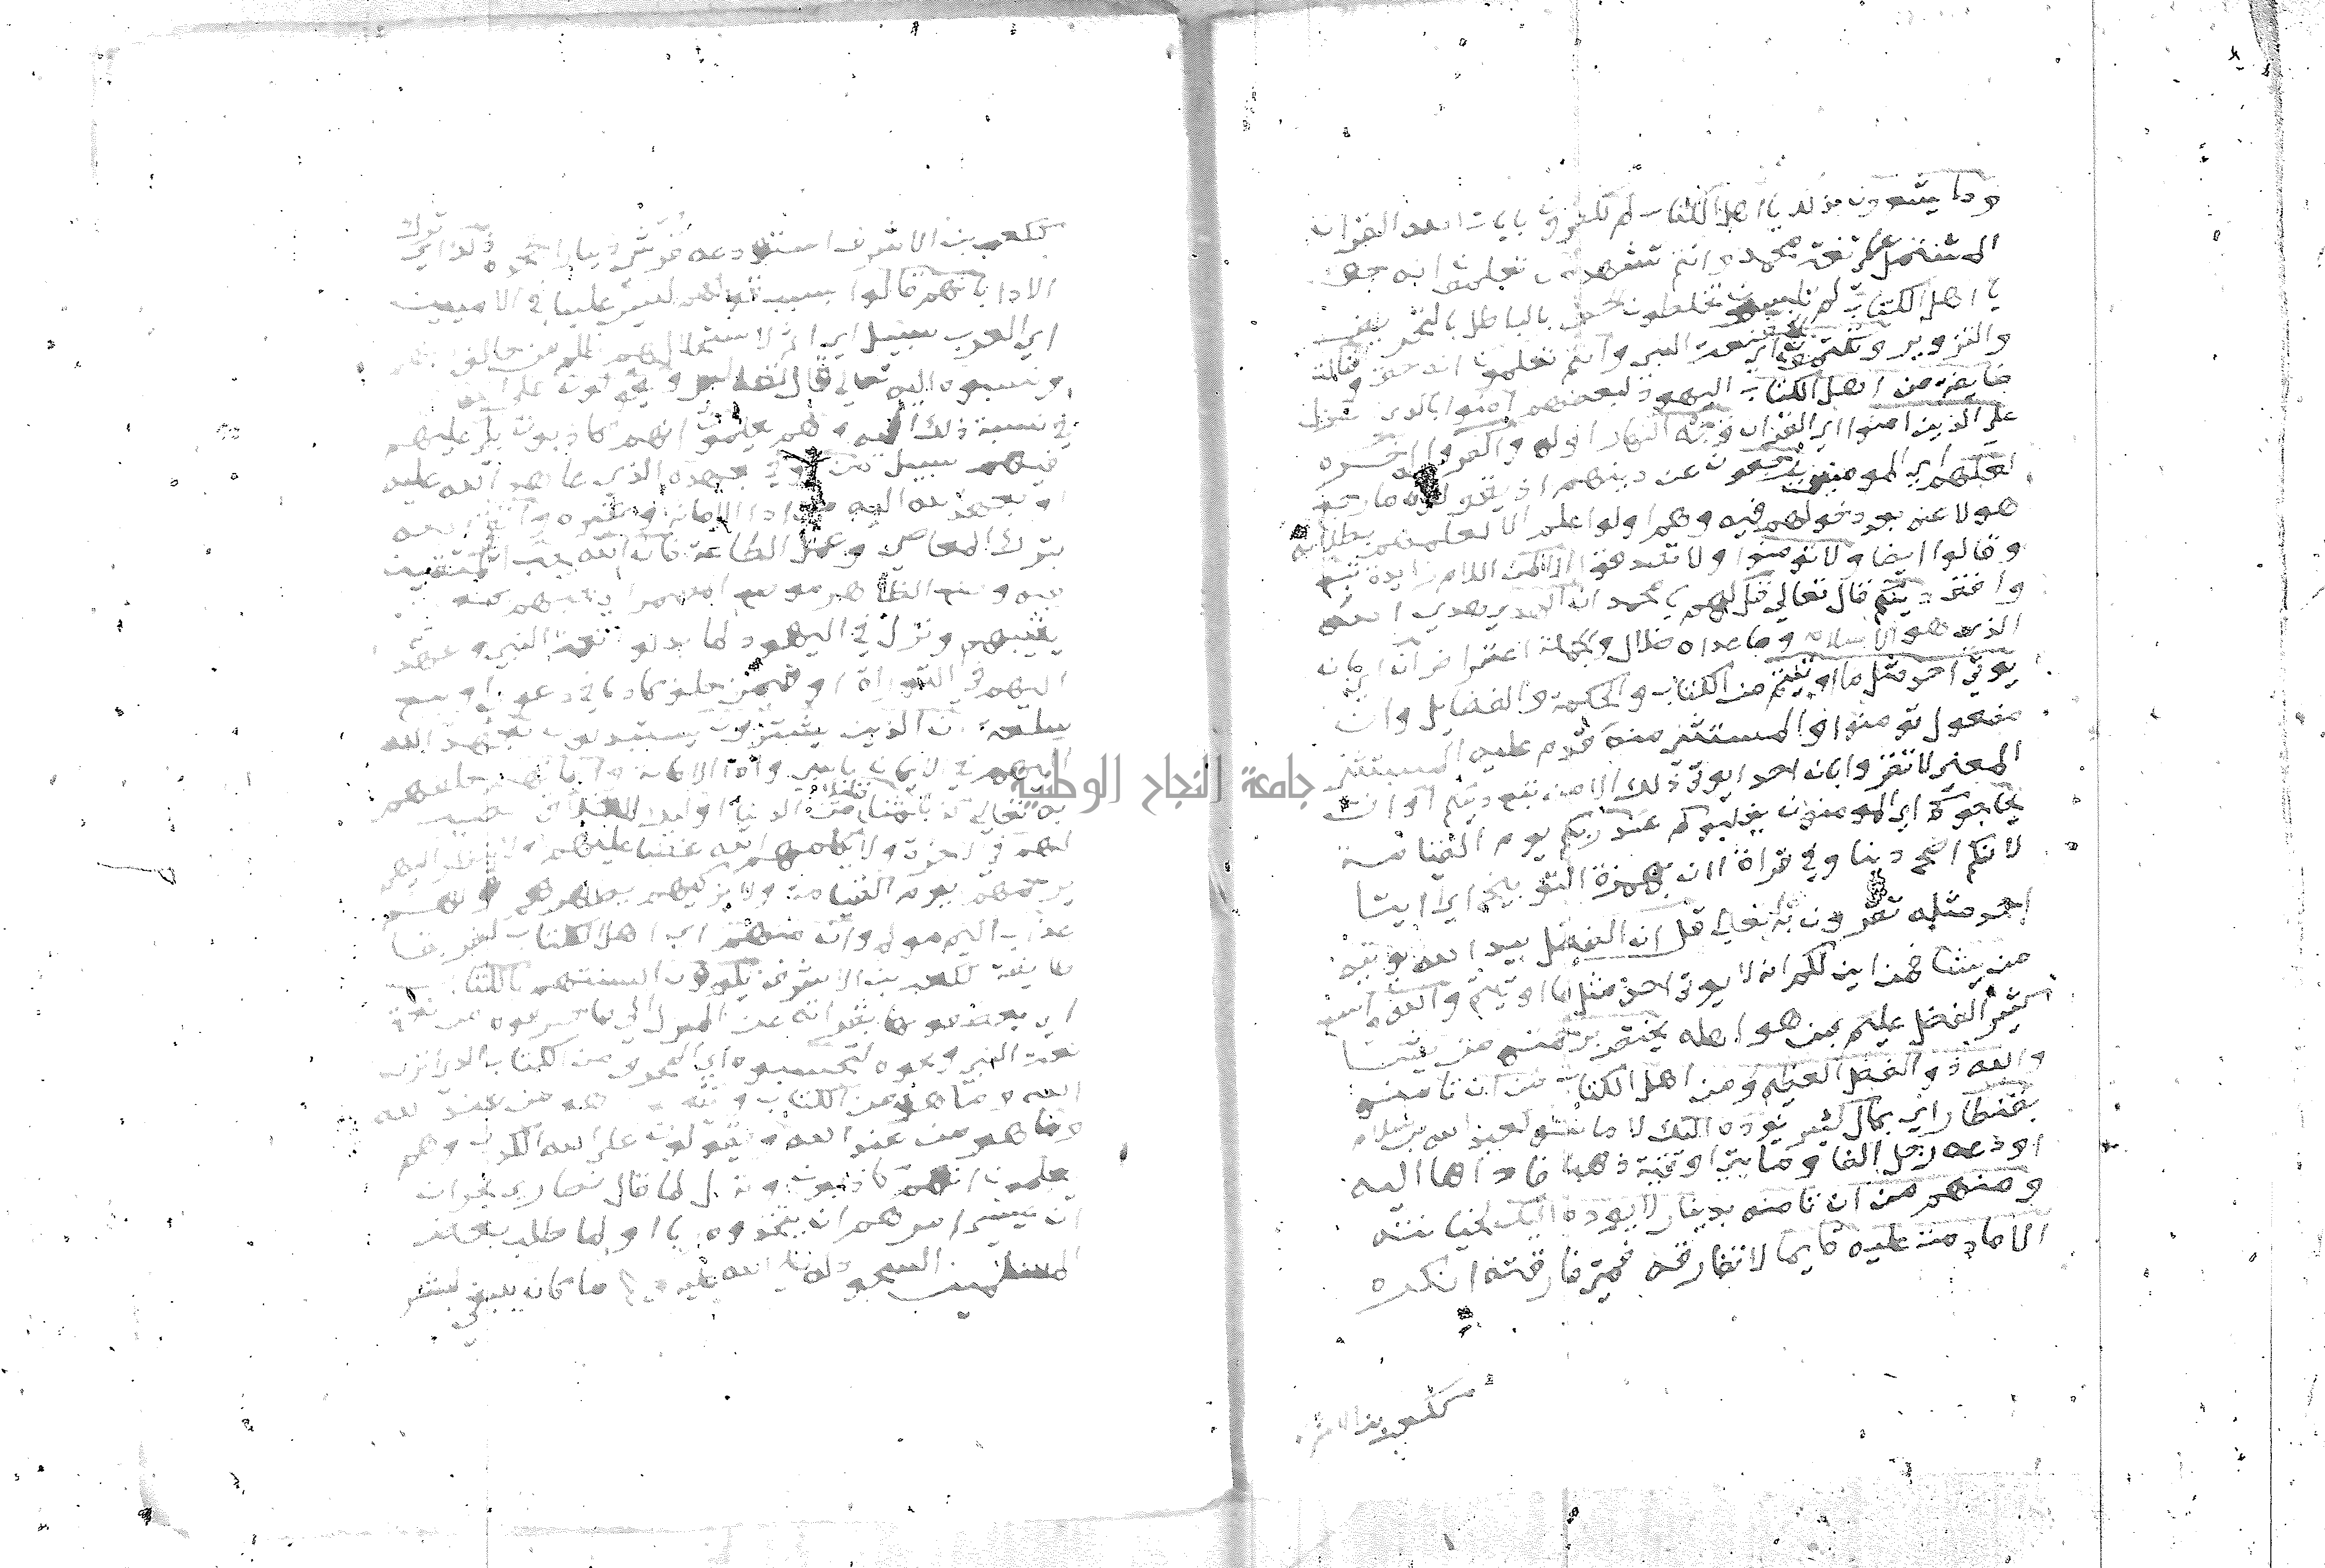 وما يشعرون بذلك يا اهل الكتاب لم تكفرون بايات الله القران
المشتمل على نعت محمد وانتم تشهدون تعلمون انه حق
يا اهل الكتاب لم تلبسون تخلطون الحق بالباطل بالتحريف
والتزوير وتكتمون الحق اي نعت النبي وانتم تعلمون انه حق وقالت
طايفة من اهل الكتاب اليهود لبعضهم امنوا بالذي انزل
على الذين امنوا اي القران وجه النهار اوله واكفروا اخره
لعلهم اي المومنين يرجعون عن دينهم اذ يقولون ما رجع
هولا عنه بعد دخولهم فيه وهم اولوا علم الا لعلمهم بطلانه
وقالوا ايضا ولا تومنوا ولا تصدقوا الا لمن اللام زايدة تبع
وافق دينكم قال تعالى قل لهم يا محمد ان الهدى هدى الله
الذي هو الاسلام وما عداه ضلال والجملة اعتراض ان اي بان
يوتى احد مثل ما اوتيتم من الكتاب والحكمة والفضايل وان
مفعول تومنوا والمستثنى منه قدم عليه المستثنى
المعنى لا تقروا بان احد ايوتى ذلك الا من تبع دينكم او ان
يحاجوكم اي المومنون يغلبوكم عند ربكم يوم القيامة
لانكم اصح دينا وفي قراة اان بهمزة التوبيخ اي ايتا
احد مثله تقرون به قال تعالى قل ان الفضل بيد الله يوتيه
من يشا فمن اين لكم انه لا يوتى احد مثل ما اوتيتم والله واسع
كثير الفضل عليم بمن هو اهله يختص برحمته من يشا
والله ذو الفضل العظيم ومن اهل الكتاب من ان تامنه
بقنطار اي بمال كثير يوده اليك لامانته كعبد الله بن سلام
اودعه رجل الفا ومايتي اوقية ذهبا فاداها اليه
ومنهم من ان تامنه بدينار لا يوده اليك لخيانته
الا ما دمت عليه قايما لا تفارقه فمتى فارقته انكره
ككعب بن الاشرف
ككعب بن الاشرف استودعه قرشي دينارا فجحده ذلك اي ترك
الادا بانهم قالوا بسبب قولهم ليس علينا في الاميين
اي العرب سبيل اي اثم لاستحلالهم ظلم من خالف دينهم
ونسبوه اليه تعالى قال تعالى ويقولون على الله
في نسبة ذلك اليه وهم يعلمون انهم كاذبون بلى عليهم
فيهم سبيل من اوفى بعهده الذي عاهد الله عليه
او بعهد الله اليه من ادا الامانة وغيره واتقى الله
بترك المعاصي وعمل الطاعة فان الله يحب المتقين
فيه وضع الظاهر موضع المضمر اي يحبهم بمعنى
يثيبهم ونزل في اليهود لما بدلوا نعت النبي وعهد
اليهم في التوراة او فيمن حلف كاذبا في دعوى او بيع
سلعة ان الذين يشترون يستبدلون بعهد الله
اليهم في الايمان بالنبي وادا الامانة وايمانهم حلفهم
به تعالى كاذبا ثمنا قليلا من الدنيا اوليك لا خلاق نصيب
لهم في الاخرة ولا يكلمهم الله غضبا عليهم ولا ينظر اليهم
يرحمهم يوم القيامة ولا يزكيهم يطهرهم ولهم
عذاب اليم مولم وان منهم اي اهل الكتاب لفريقا
طايفة ككعب بن الاشرف يلوون السنتهم بالكتاب
اي يعطفونها بقراته عن المنزل الى ما حرفوه من
نعت النبي ونحوه لتحسبوه اي المحرف من الكتاب الذي انزله
الله وما هو من الكتاب ويقولون هو من عند الله
وما هو من عند الله ويقولون على الله الكذب وهم
يعلمون انهم كاذبون ونزل لما قال نصارى نجران
ان عيسى امرهم ان يتخذوه ربا او لما طلب بعض
المسلمين السجود له صلى الله عليه وسلم ما كان ينبغي لبشر
جامعة النجاح الوطنية